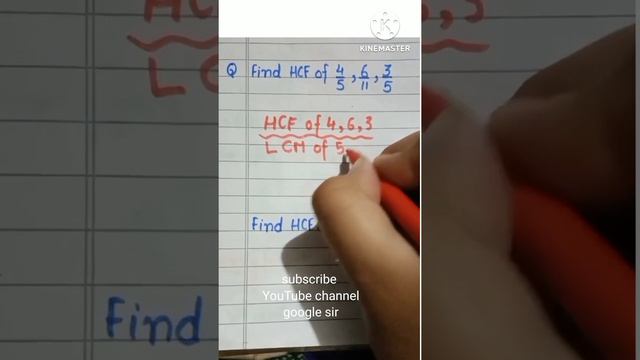 KINEMASTER
Q Find HCF of 4/5, 6/11, 3/5
HCF of 4, 6, 3
LCM of 5,
Find HCF
subscribe
YouTube channel
google sir
HC
Find